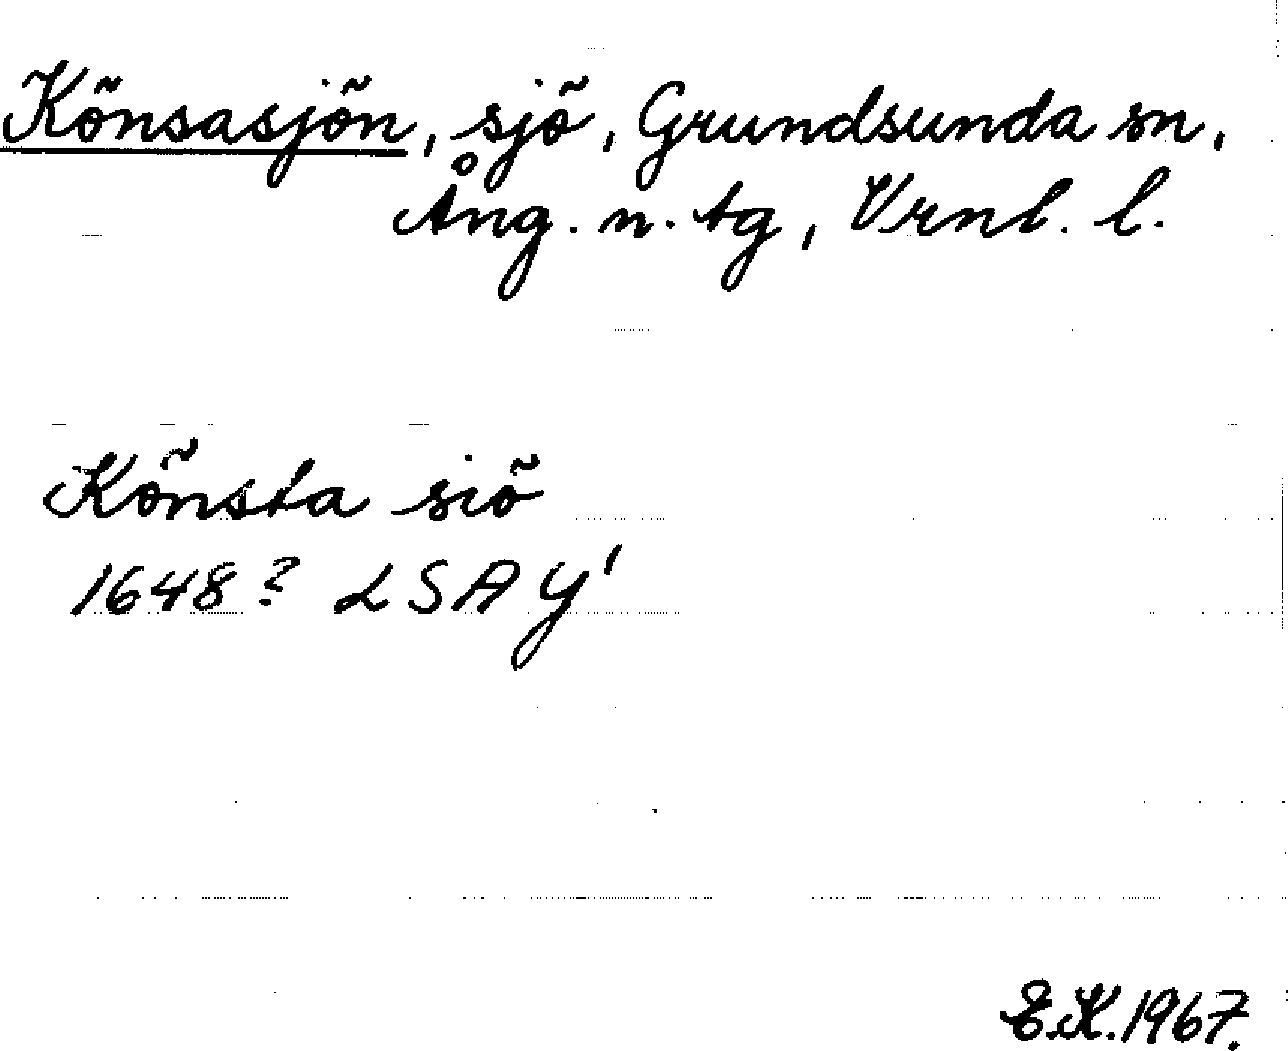 Könsasjön, sjö, Grundsunda sn,
Ång. n. tg, Vrnl. l.
Könsta siö
1648? LSA Y'
E.K. 1967.